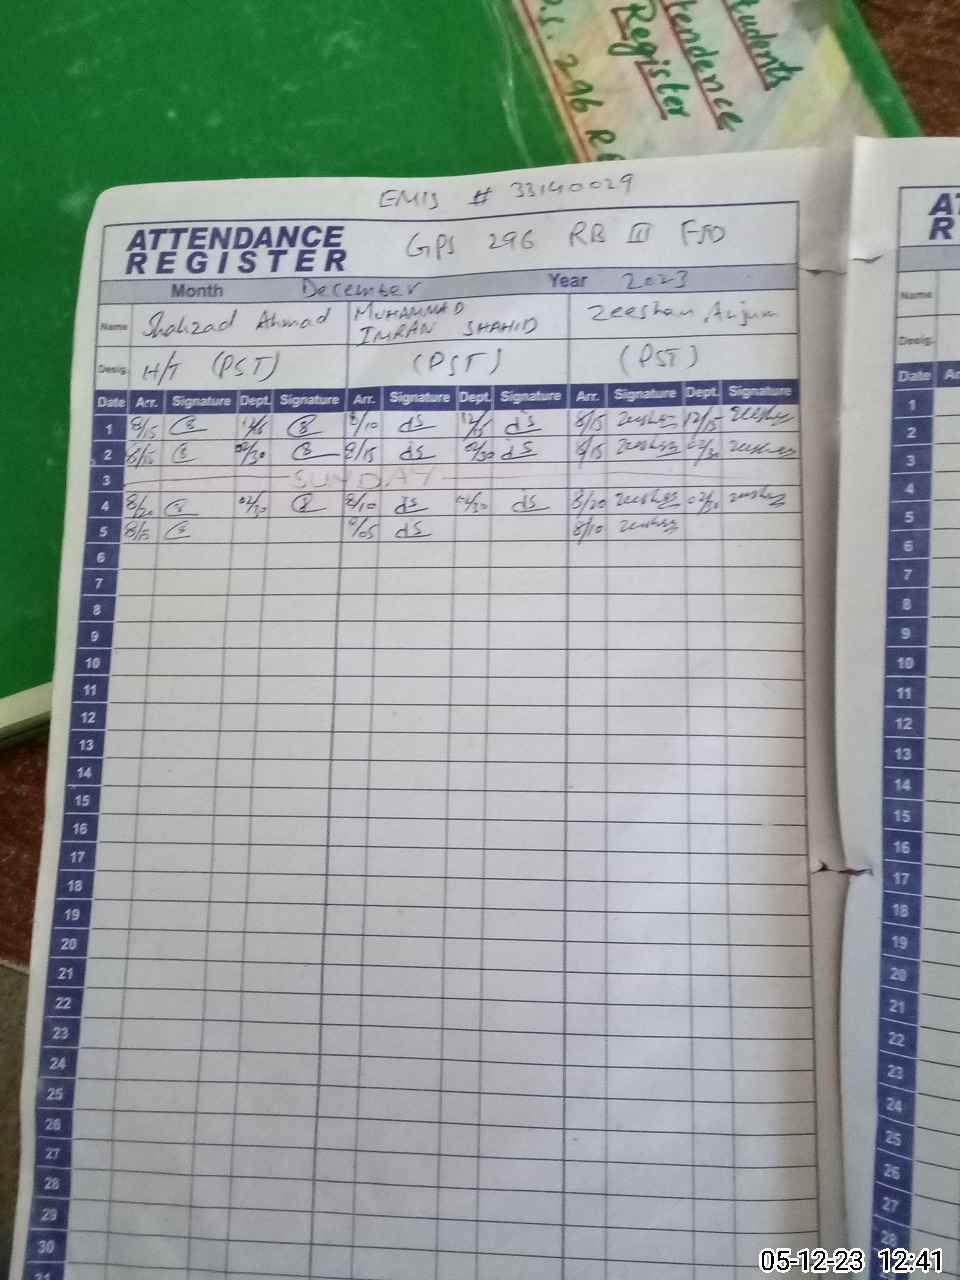 Students
Attendence
Register
P.S. 296 R
EMIS # 33140029
ATTENDANCE REGISTER
GPS 296 RB III FSD
Month December Year 2023
Name Shahzad Ahmad MUHAMMAD IMRAN SHAHID Zeeshan Anjum
Desig. H/T (PST) (PST) (PST)
Date Arr. Signature Dept. Signature Arr. Signature Dept. Signature Arr. Signature Dept. Signature
1 8/15 8/10 8/15 12/15
2 8/15 02/30 8/15 02/30 8/15 02/30
3 SUNDAY
4 8/20 02/30 8/10 02/30 8/20 02/30
5 8/15 8/05 8/10
6
7
8
9
10
11
12
13
14
15
16
17
18
19
20
21
22
23
24
25
26
27
28
29
30
31
AT
R
Name
Desig.
Date Ar
1
2
3
4
5
6
7
8
9
10
11
12
13
14
15
16
17
18
19
20
21
22
23
24
25
26
27
28
05-12-23 12:41